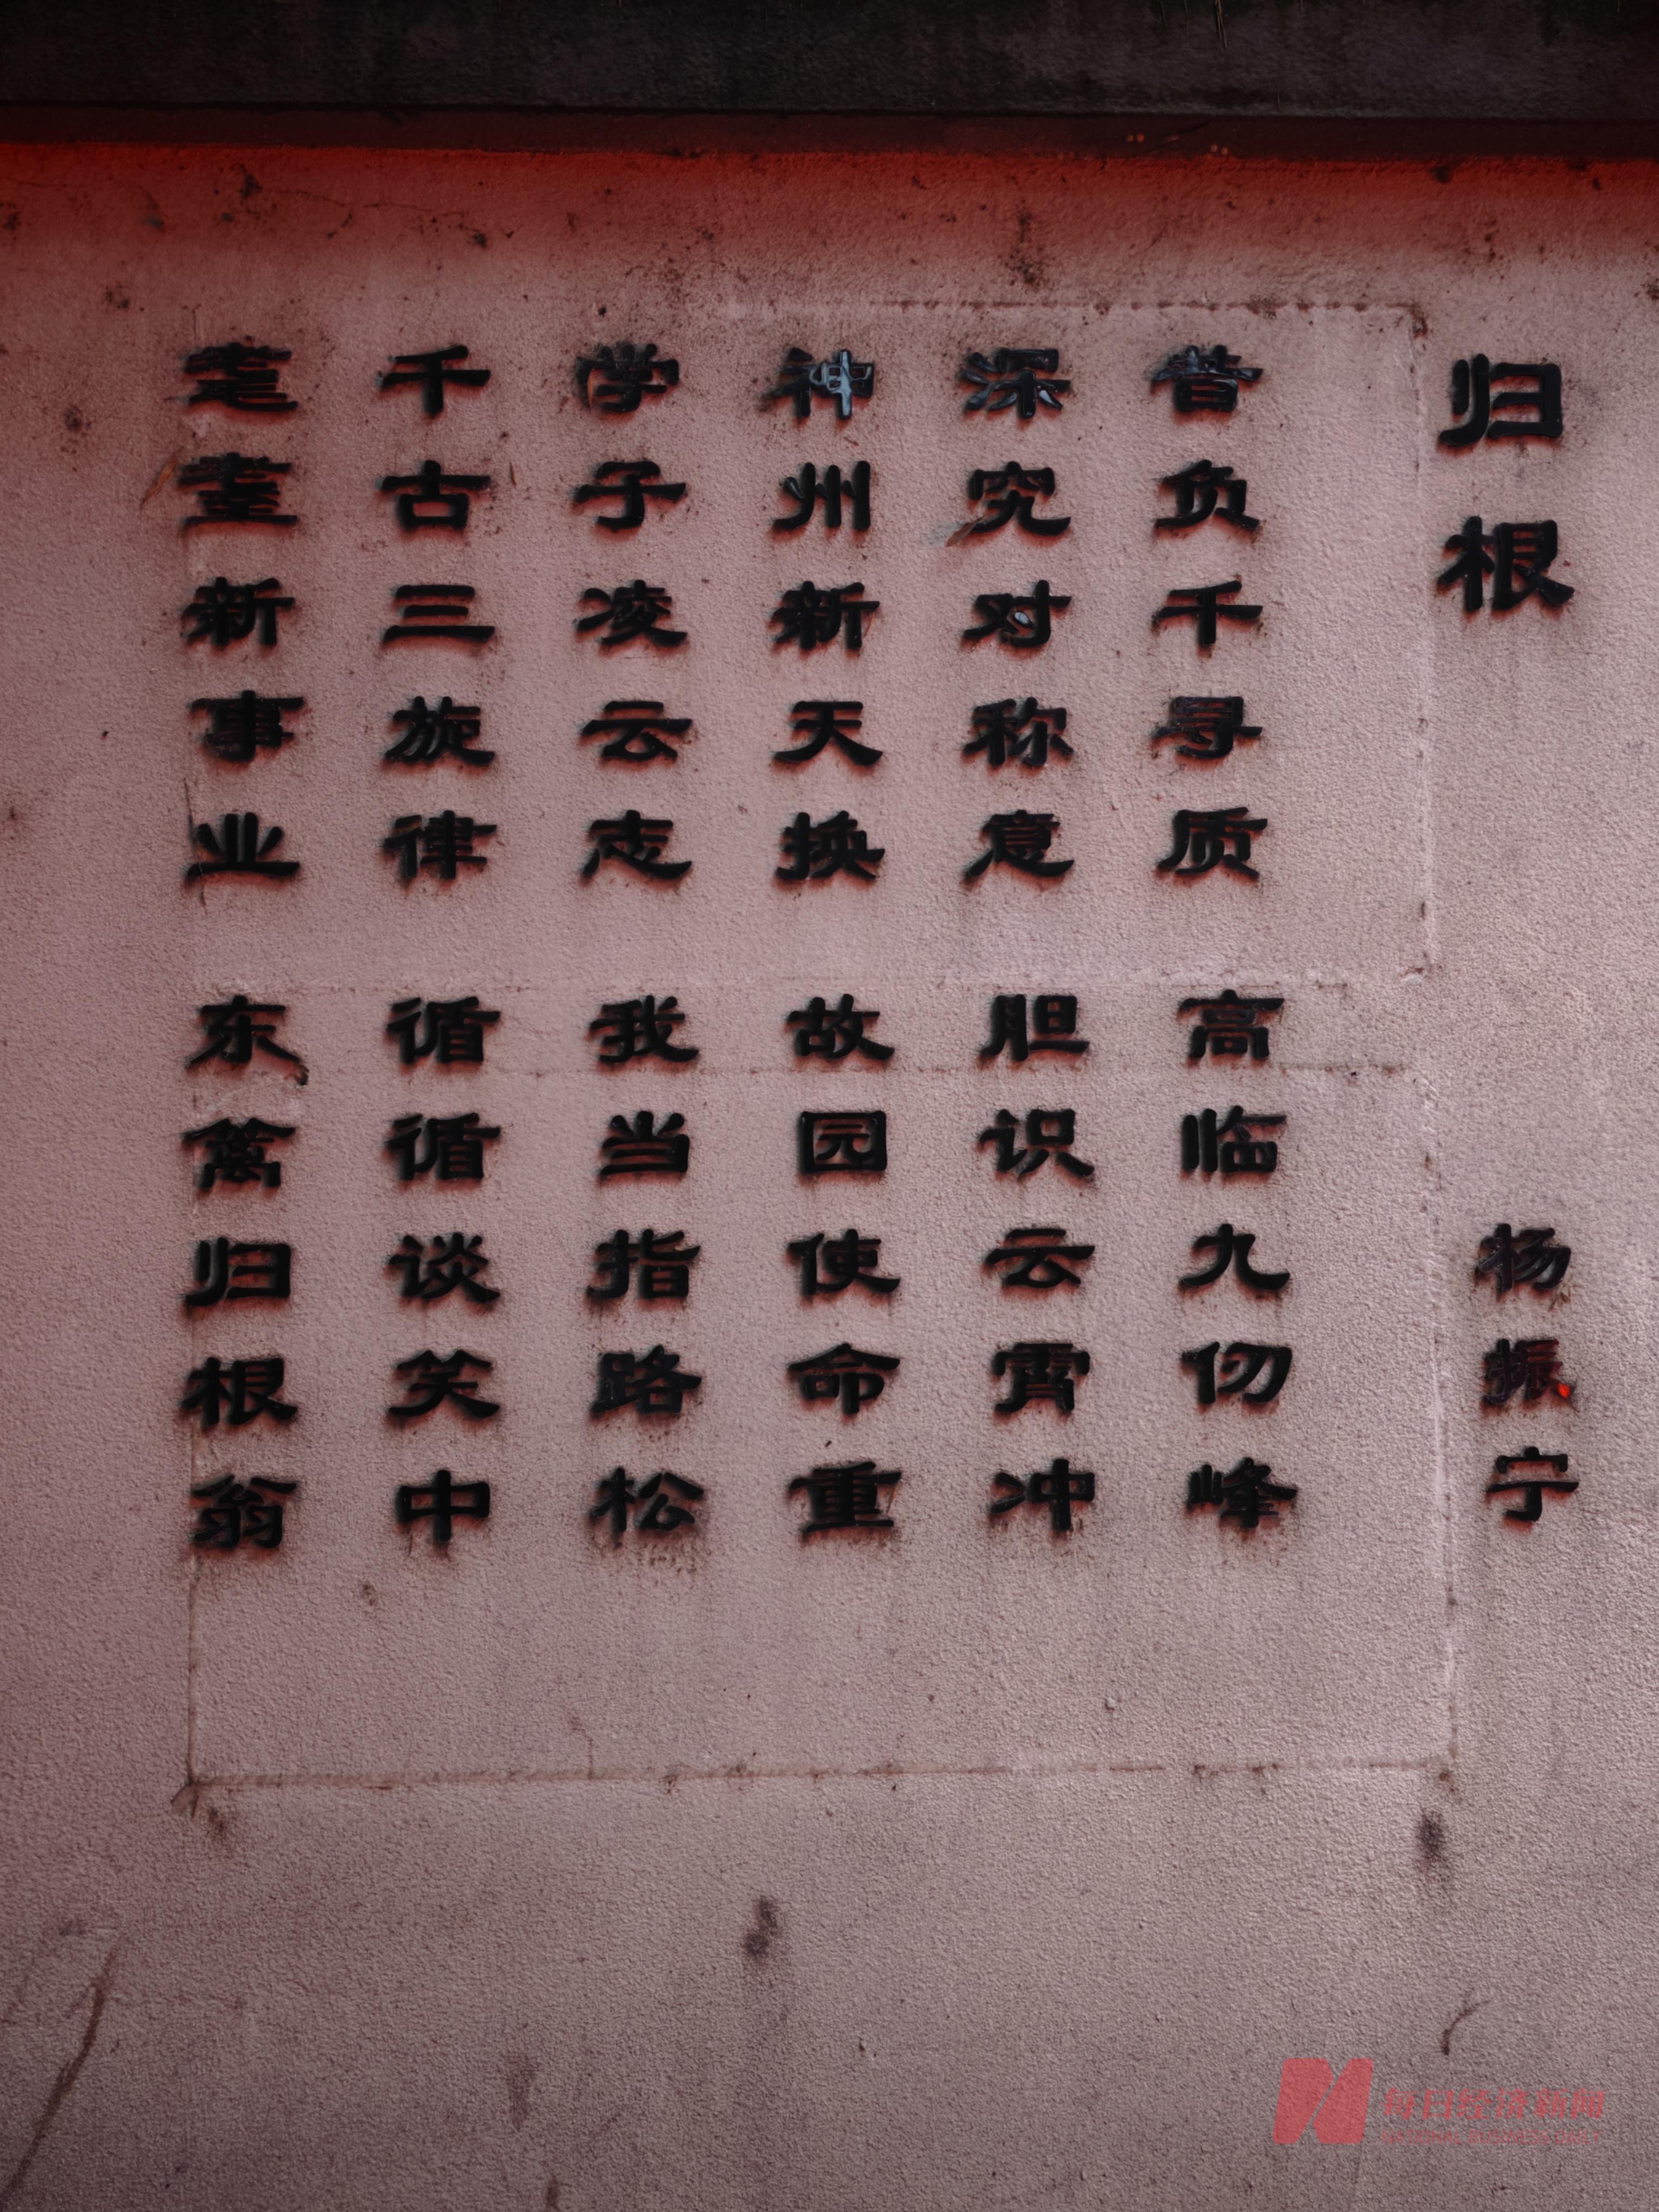 归根
杨振宁
昔负千寻质 高临九仞峰
深究对称意 胆识云霄冲
神州新天换 故园使命重
学子凌云志 我当指路松
千古三旋律 循循谈笑中
耄耋新事业 东禽归根翁
每日经济新闻
NATIONAL BUSINESS DAILY